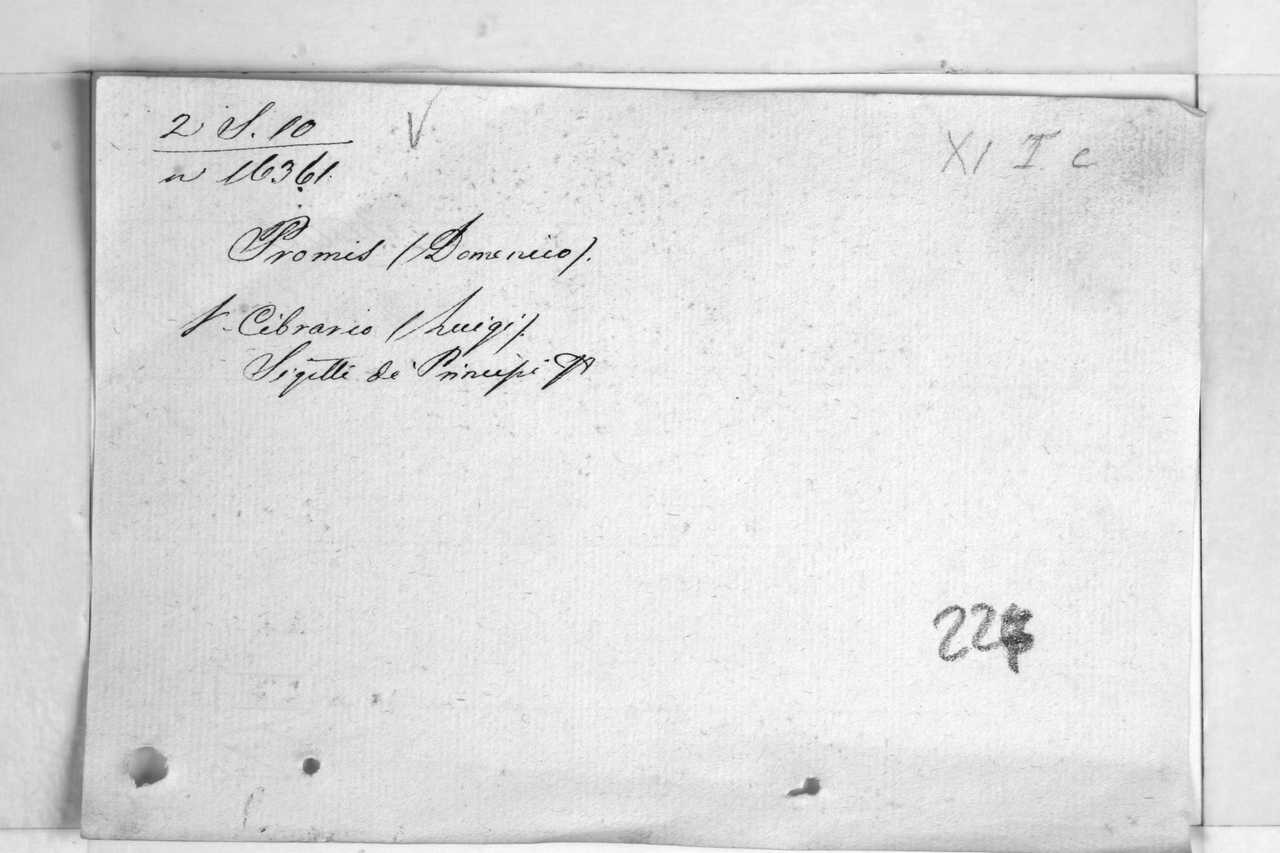 2 S. 10
V
XI I c
n 16361.
Promis (Domenico).
V. Cibrario (Luigi).
Sigilli de' Principi
22